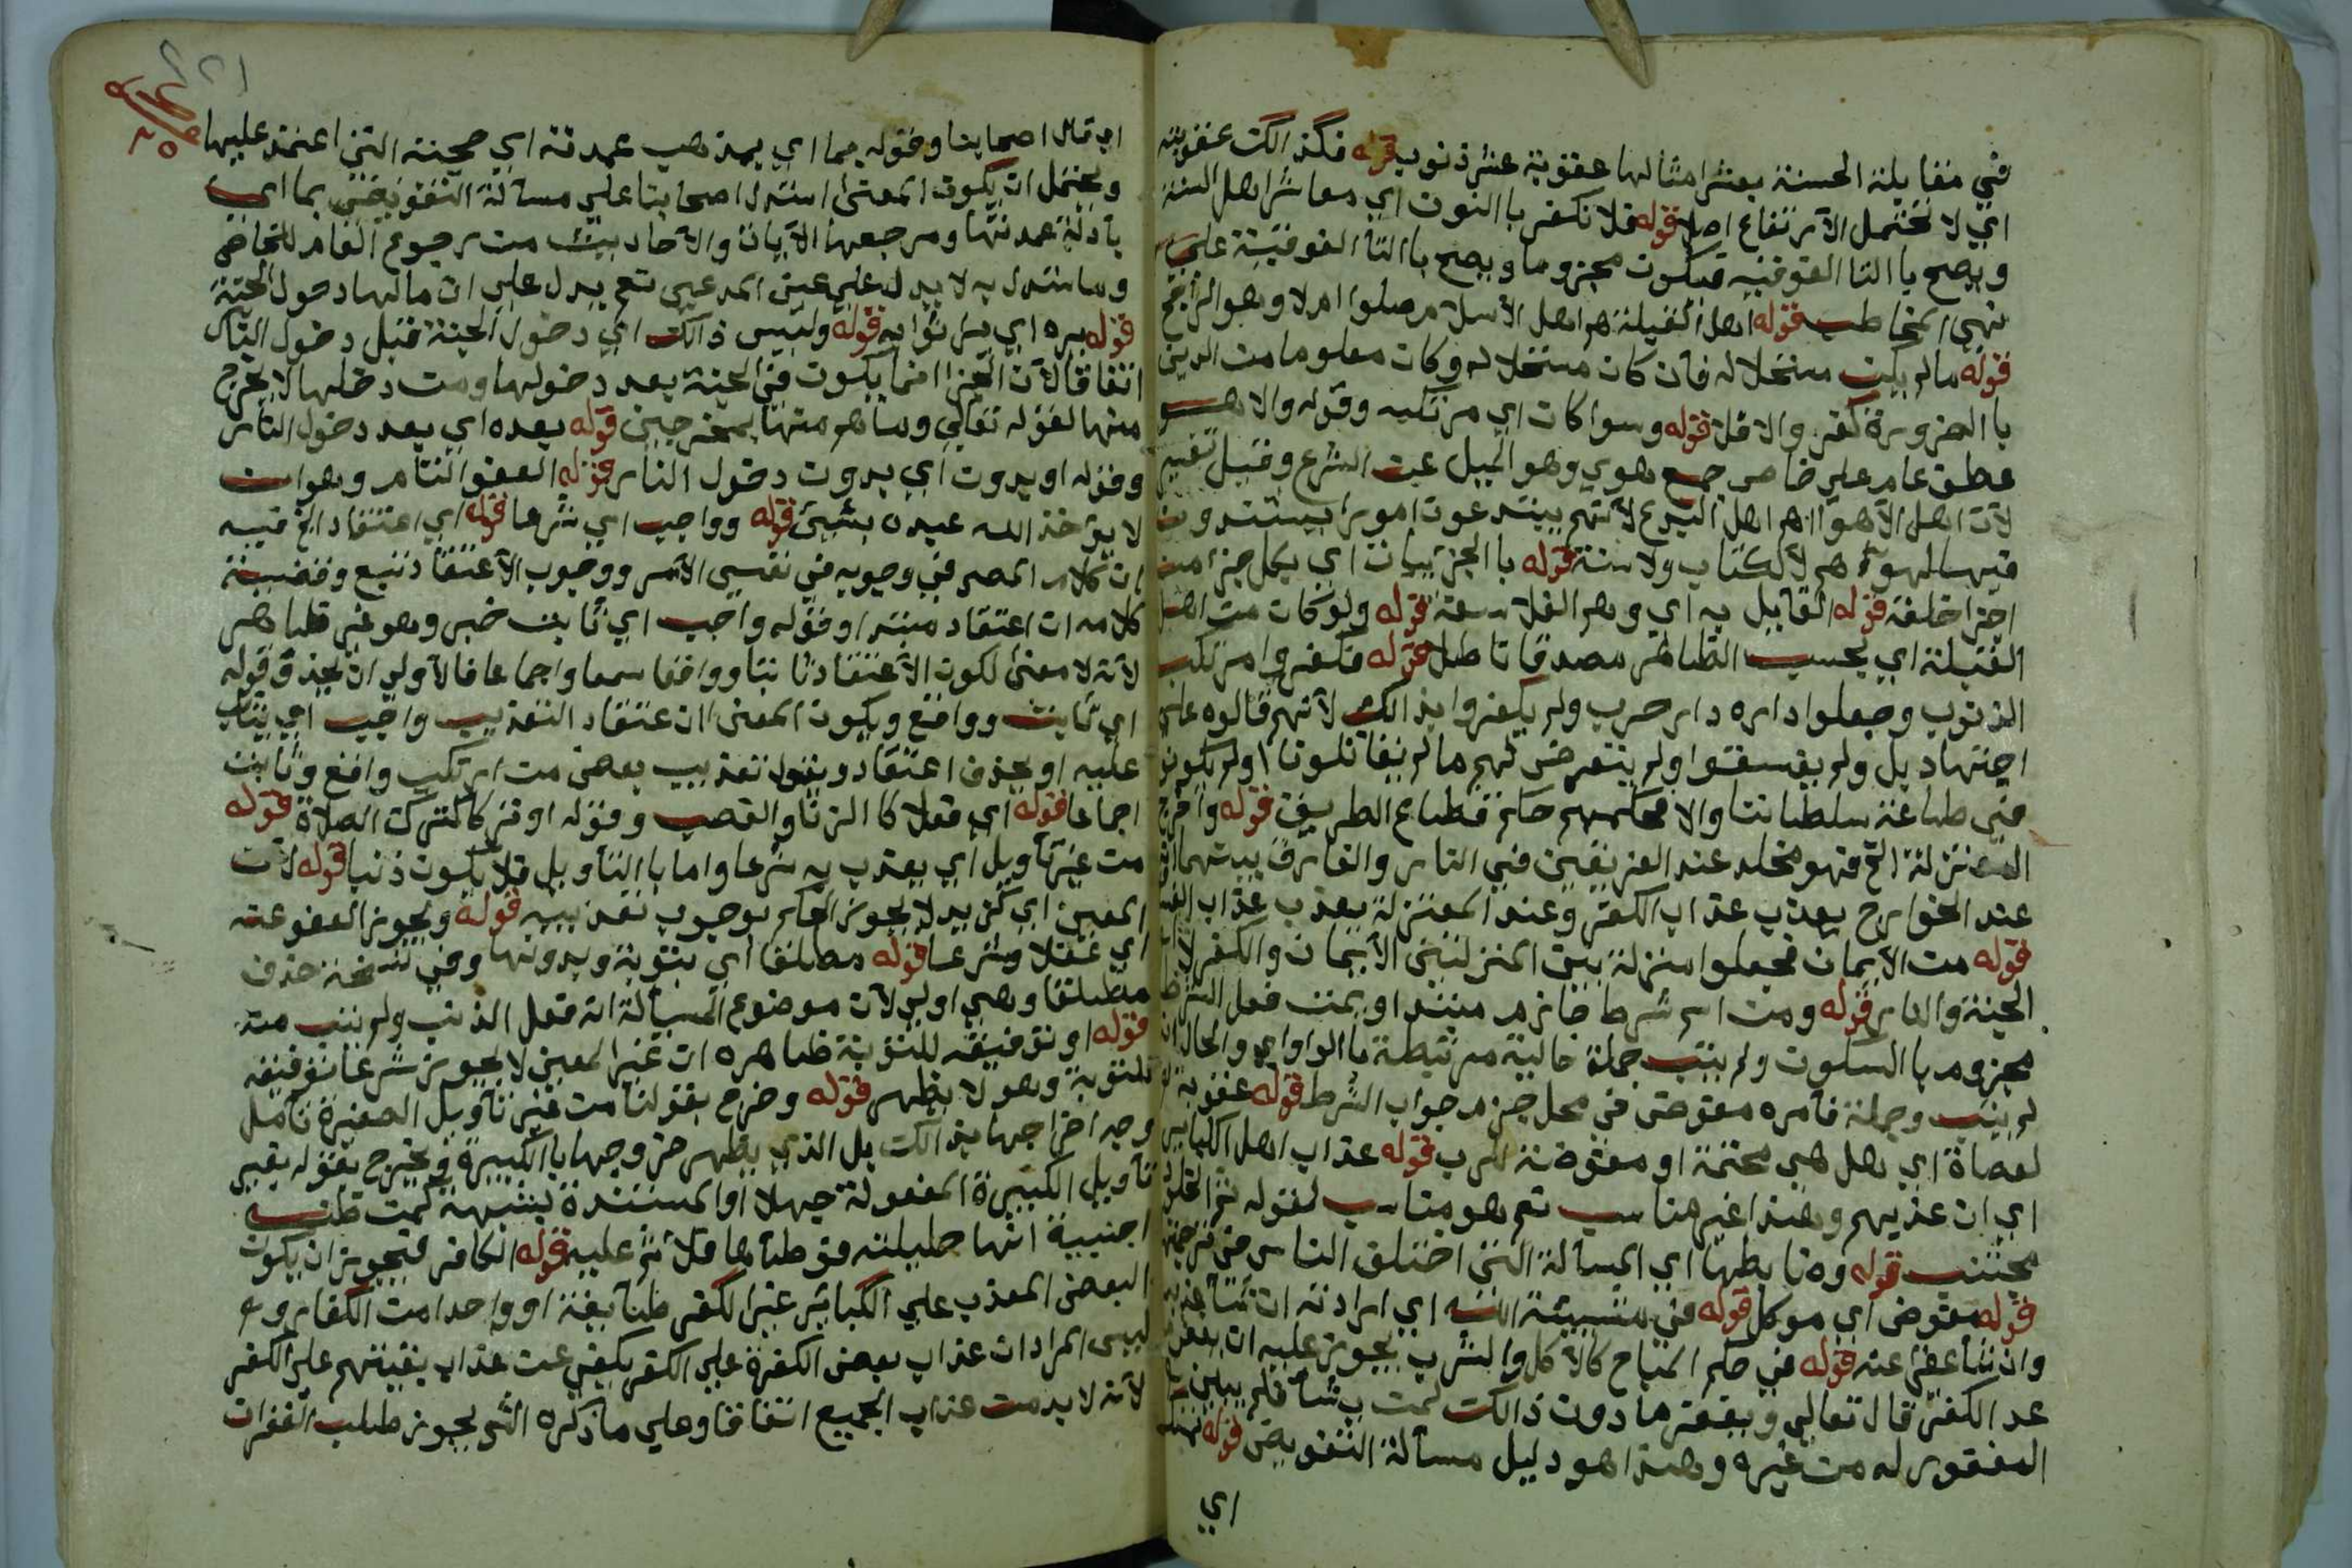 في مقابلة الحسنة بعشر امثالها عقوبة عشر ذنوب قوله فكذالك عقوبته
اي لا تحتمل الارتفاع اصلا قوله فلا نكفر باالنون اي معاشر اهل السنة
ويصح باالتا الفوقيه فيكون مجزوما ويصح باالتا الفوقية على
نهي المخاطب قوله اهل القبلة هم اهل الاسلام صلوا ام لا وهو الراجح
قوله مالم يكن مستحلا له فان كان مستحلا له وكان معلوما من الدين
باالضرورة كفر والا فلا قوله وسوا كان اي مرتكبه وقوله والاهو
عطف عام على خاص جمع هوي وهو الميل عن الشرع وقيل
لان اهل الاهوا هم اهل البدع لانهم يبتدعون امورا يستندون
فيها لهواهم لا لكتاب ولا سنة قوله باالجزييات اي بكل جزا من
اجزا خلقه قوله القايل به اي وهم الفلاسفة قوله ولو كان من اهل
القبلة اي بحسب الظاهر مصدقا باطل قوله فكفروا مرتكب
الذنوب وجعلوا داره دار حرب ولم يكفروا بذالك لانهم قالوه على
اجتهاد بل ولم يفسقوا ولم يتعرض لهم مالم يقاتلونا ولم يكونوا
في طاعة سلطاننا والا فحكمهم حكم قطاع الطريق قوله واخرج
المعتزلة الخ فهو مخلد عند الفريقين في النار والفارق بينهما
عند الخوارج يعذب عذاب الكفر وعند المعتزلة يعذب عذاب
قوله من الايمان فجعلوا منزلة بين المنزلتين الايمان والكفر لا
الجنة والنار قوله ومن اسم شرط جازم مبتدا ويمت فعل الشرط
مجزوم باالسكون ولم يتب جملة حالية مرتبطة باالواو اي والحال انه
لم يتب وجملة فامره مفوض في محل جزم جواب الشرط قوله عقوبة
لعصاة اي هل هي محتمة او مفوضة للرب قوله عذاب اهل الكباير
اي ان عذبهم وهذا غير مناسب نعم هو مناسب لقوله ثم الخلود
مجتنب قوله وضابطها اي المسألة التي اختلف الناس في ترجمتها
قوله مفوض اي موكل قوله في مشيئة الله اي ارادته ان شا عذبه
وان شا عفى عنه قوله في حكم المباح كالاكل والشرب يجوز عليه ان يغفر
عدا الكفر قال تعالى ويغفر ما دون ذالك لمن يشا فلم يبين
المغفور له من غيره وهذا هو دليل مسألة التفويض قوله
اي
اي قال اصحابنا وقوله بما اي بمذهب عمدته اي حجته التي اعتمد عليها
ويحتمل ان يكون المعنى استدل اصحابنا على مسألة التفويض بما اي
بأدلة عمدتها ومرجعها الآيات والاحاديث من رجوع العام للخاص
وما استدل به لا يدل على عين المدعي نعم يدل على ان مالها دخول الجنة
قوله يره اي ير ثوابه قوله وليس ذالك اي دخول الجنة قبل دخول النار
اتفاقا لان الجزا انما يكون في الجنة بعد دخولها ومن دخلها لا يخرج
منها لقوله تعالى وما هم منها بمخرجين قوله بعده اي بعد دخول النار
وقوله او بدون اي بدون دخول النار قوله العفو التام وهو ان
لا يؤاخذ الله عبده بشيئ قوله وواجب اي شرعا قوله اي اعتقاد الخ فيه
ان كلام المصر في وجوبه في نفس الامر ووجوب الاعتقاد تبع وقضية
كلامه ان اعتقاد مبتدا وقوله واجب اي ثابت خبر وهو غير ظاهر
لانه لا معنى لكون الاعتقاد ثابتا وواقعا سمعا واجماعا فالاولى ان يحذف قوله
اي ثابت وواقع ويكون المعنى ان اعتقاد التعذيب واجب اي يثاب
عليه او يحذف اعتقاد ويقول تعذيب بعض من ارتكب واقع وثابت
اجماعا قوله اي فعلا كا الزنا والغصب وقوله او تركا كترك الصلاة قوله
من غير تأويل اي يعذب به شرعا واما باالتأويل فلا يكون ذنبا قوله لان
المعين اي كزيد لا يجوز الحكم بوجوب تعذيبه قوله ويجوز العفو عنه
اي عقلا وشرعا قوله مطلقا اي بتوبة وبدونها وفي نسخة حذف
مطلقا وهي اولى لان موضوع المسألة انه فعل الذنب ولم يتب منه
قوله او توفيقه للتوبة ظاهره ان غير المعين لا يجوز شرعا توفيقه
للتوبة وهو لا يظهر قوله وخرج بقولنا من غير تأويل الصغيرة تأمل
وجه اخراجها بذالك بل الذي يظهر خروجها باالكبيرة ويخرج بقوله بغير
تأويل الكبيرة المفعولة جهلا او المستندة لشبهة كمن ظن
اجنبية انها حليلته فوطأها فلا اثم عليه قوله الكافر فيجوز ان يكون
البعض المعذب على الكباير غير الكفر طايفة او واحدا من الكفار و
ليس المراد ان عذاب بعض الكفرة على الكفر يكفي عن عذاب بقيتهم على الكفر
لانه لا بد من عذاب الجميع اتفاقا وعلى ما ذكره الش يجوز طلب الغفران